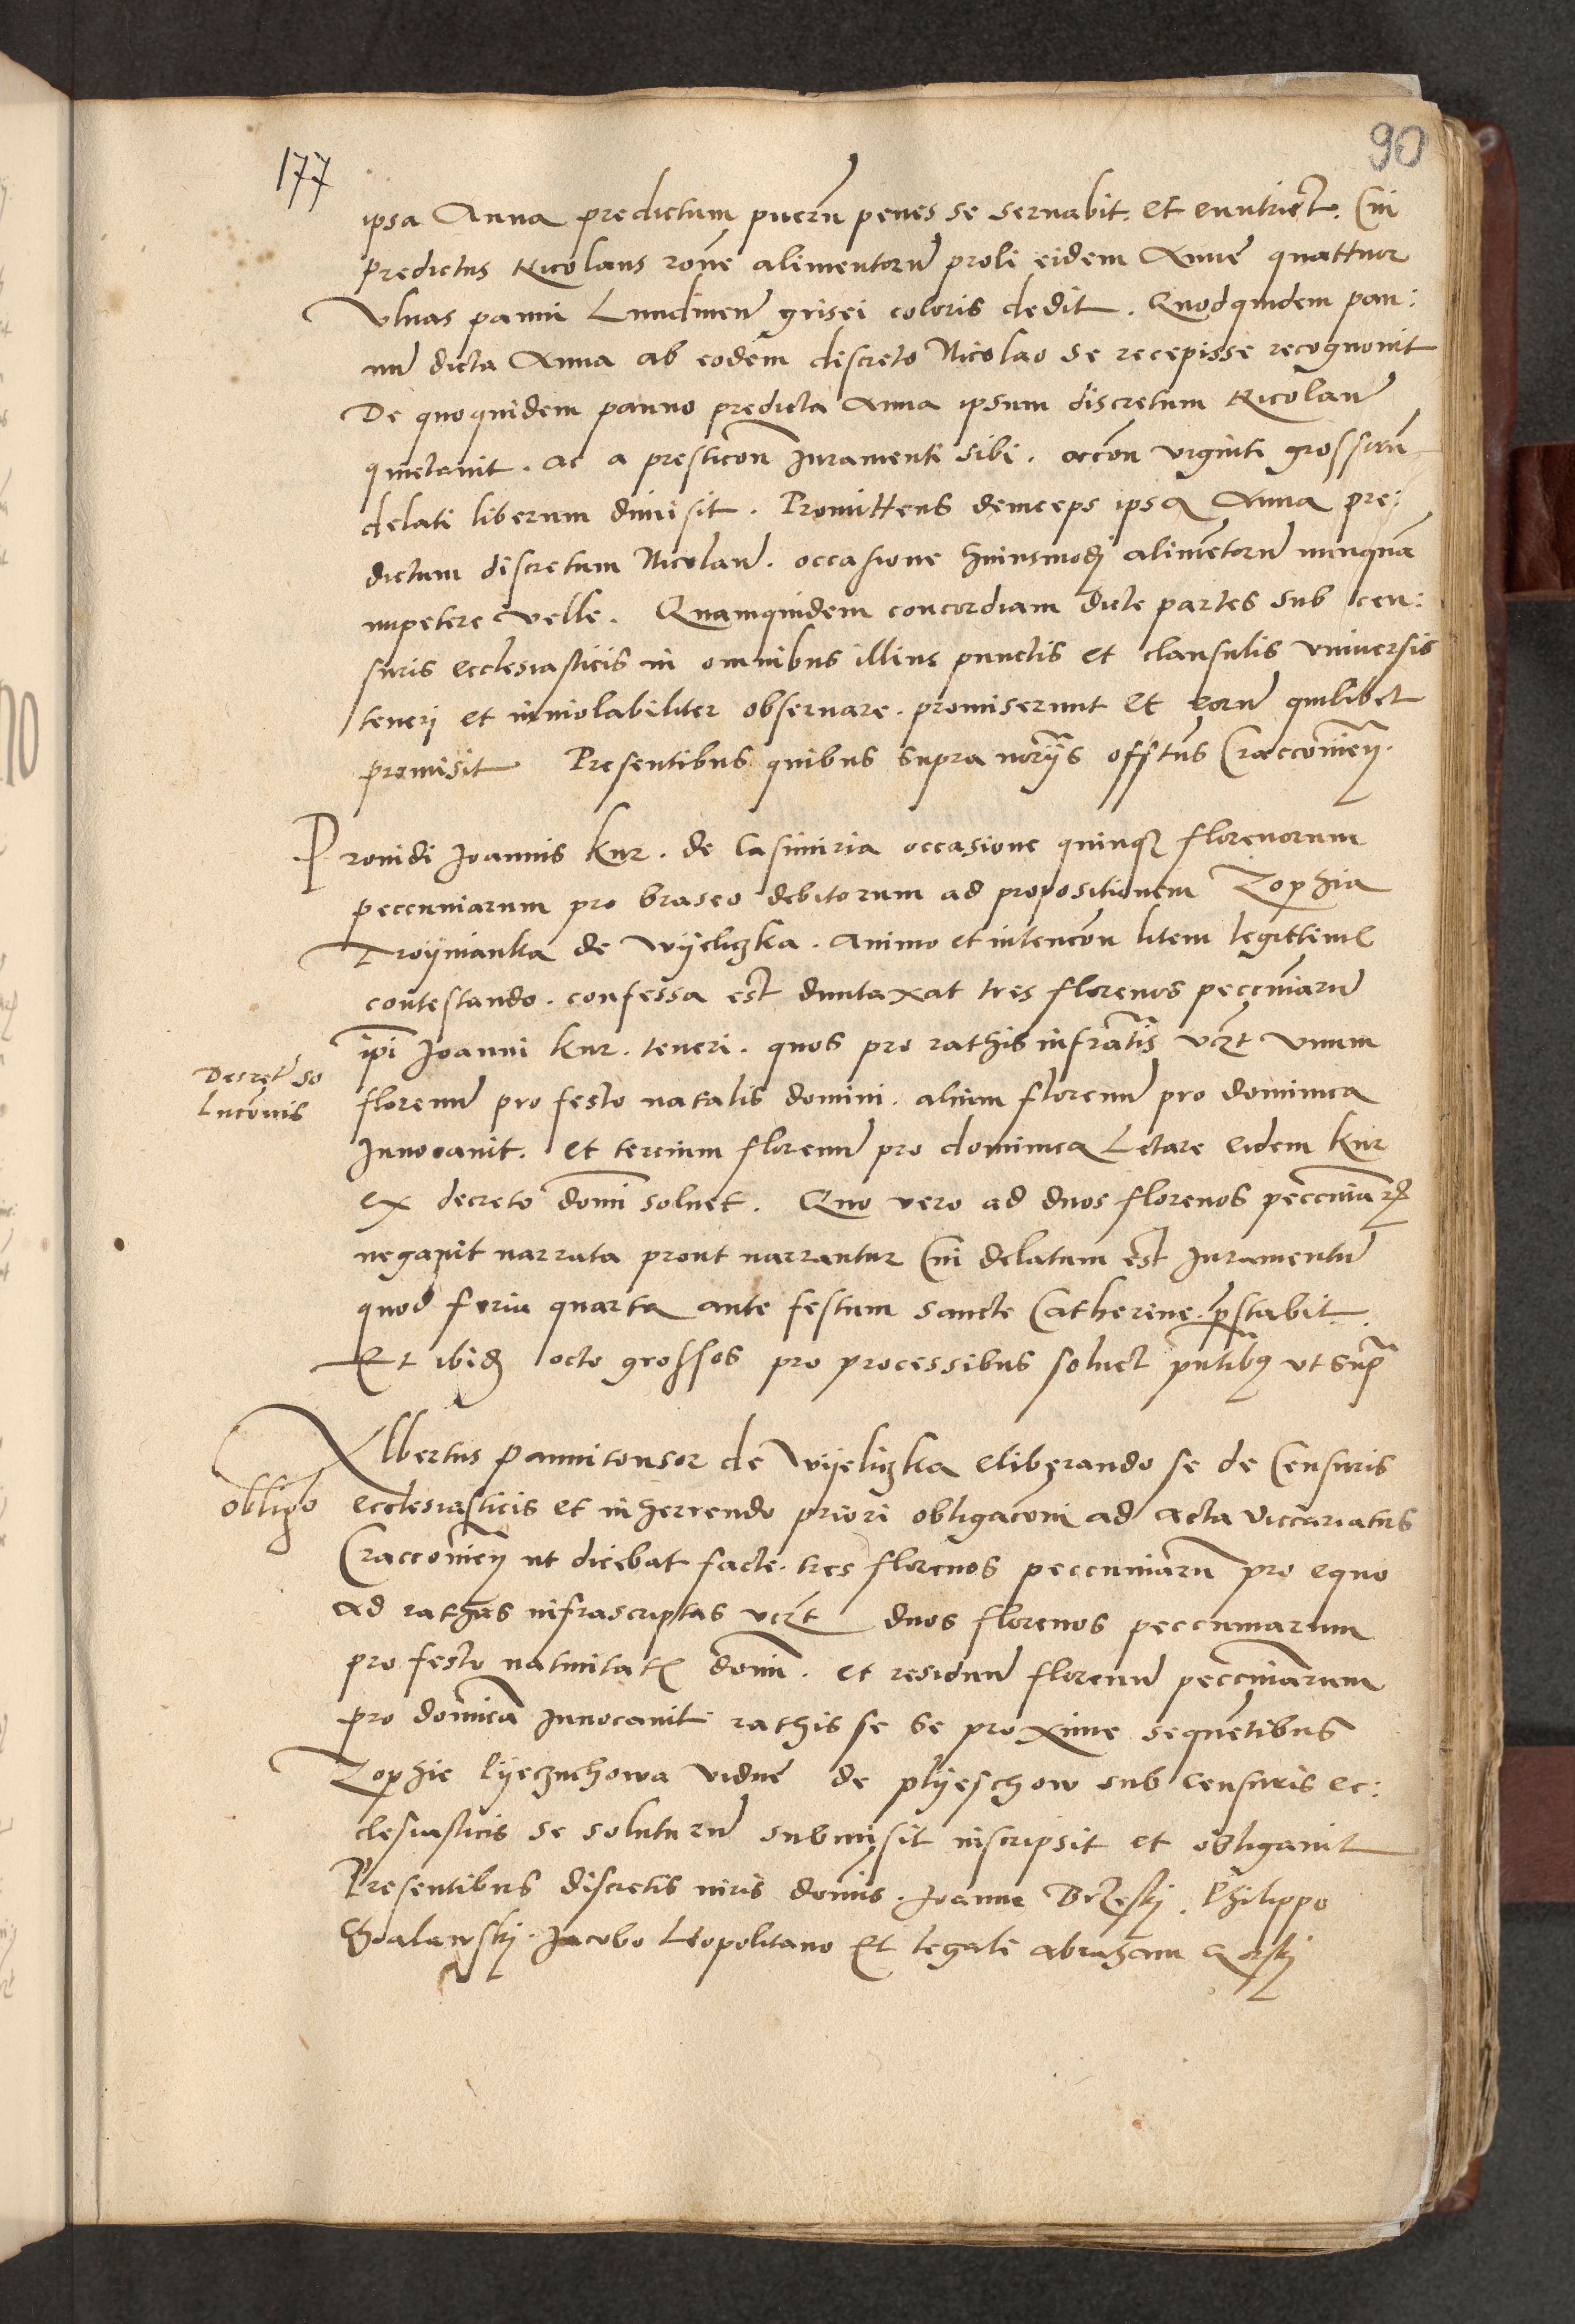 90
177
ipsa Anna predictum puerũ penes se seruabit. et enutriet. Cui
predictus Nicolaus rõne alimentorũ proli eidem Anne quattuor
Vlnas panni Lundinen̄ grisei coloris dedit. Quodquidem pan:
nũ dicta Anna ab eodem discreto Nicolao se recepisse recognouit
De quoquidem panno predicta Anna ipsum discretum Nicolaũ
quietauit. ac a presticõn Juramenti sibi. occõn viginti grossorũ
delati liberum dimisit. Promittens deinceps ipsa Anna pre:
dictum discretum Nicolaũ. occasione huiusmodj alimẽtorũ nunquã
impetere velle. Quamquidem concordiam dicte partes sub cen:
suris ecclesiasticis in omnibus illius punctis et clausulis vniuersis
tenerj et inuiolabiliter obseruare. promiserunt et eorũ quilibet
promisit Presentibus quibus supra norijs offtus Craccouien̄.
Prouidi Joannis Knr. de Casimiria occasione quinqȝ florenorum
peccuniarum pro braseo debitorum ad propositionem Zophia
Troynianka de Wyeliczka. Animo et intencõn litem legittime
contestando. confessa est duntaxat tres florenos peccũiarũ
Decretũ so
lucõnis
ip̃i Joanni Knr. teneri. quos pro rathis infratis vcʒt vnum
florenũ pro festo natalis domini. alium florenũ pro dominica
Inuocauit. et tercium florenũ pro dominica Letare eidem Knr
ex decreto domĩ soluet. Quo vero ad duos florenos peccuniarꝝ
negauit narrata prout narrantur Cui delatum est Juramentũ
quod feria quarta ante festum sancte Catherine p̱stabit.
Et ibidȝ octo grossos pro processibus soluet p̃ntibȝ vt sup̃
Albertus pannitonsor de Wyeliczka eliberando se de Censuris
obligo
ecclesiasticis et inherrendo priori obligacõni ad acta viccariatus
Craccouien̄ ut dicebat facte. tres florenos peccuniarũ pro equo
ad rathas infrascriptas vcʒt duos florenos peccuniarum
pro festo natiuitatꝭ domĩ. et residuũ florenũ peccũiarum
pro domĩca Inuocauit rathis se se proxime sequẽtibus
Zophie Pyeczuchowa vidue de plyeschow sub censuris ec:
clesiasticis se soluturũ submisit inscripsit et obligauit
Presentibus discretis viris domĩs. Joanne Brzeskj. Philippo
Jacobo Leopolitano Et legali abraham